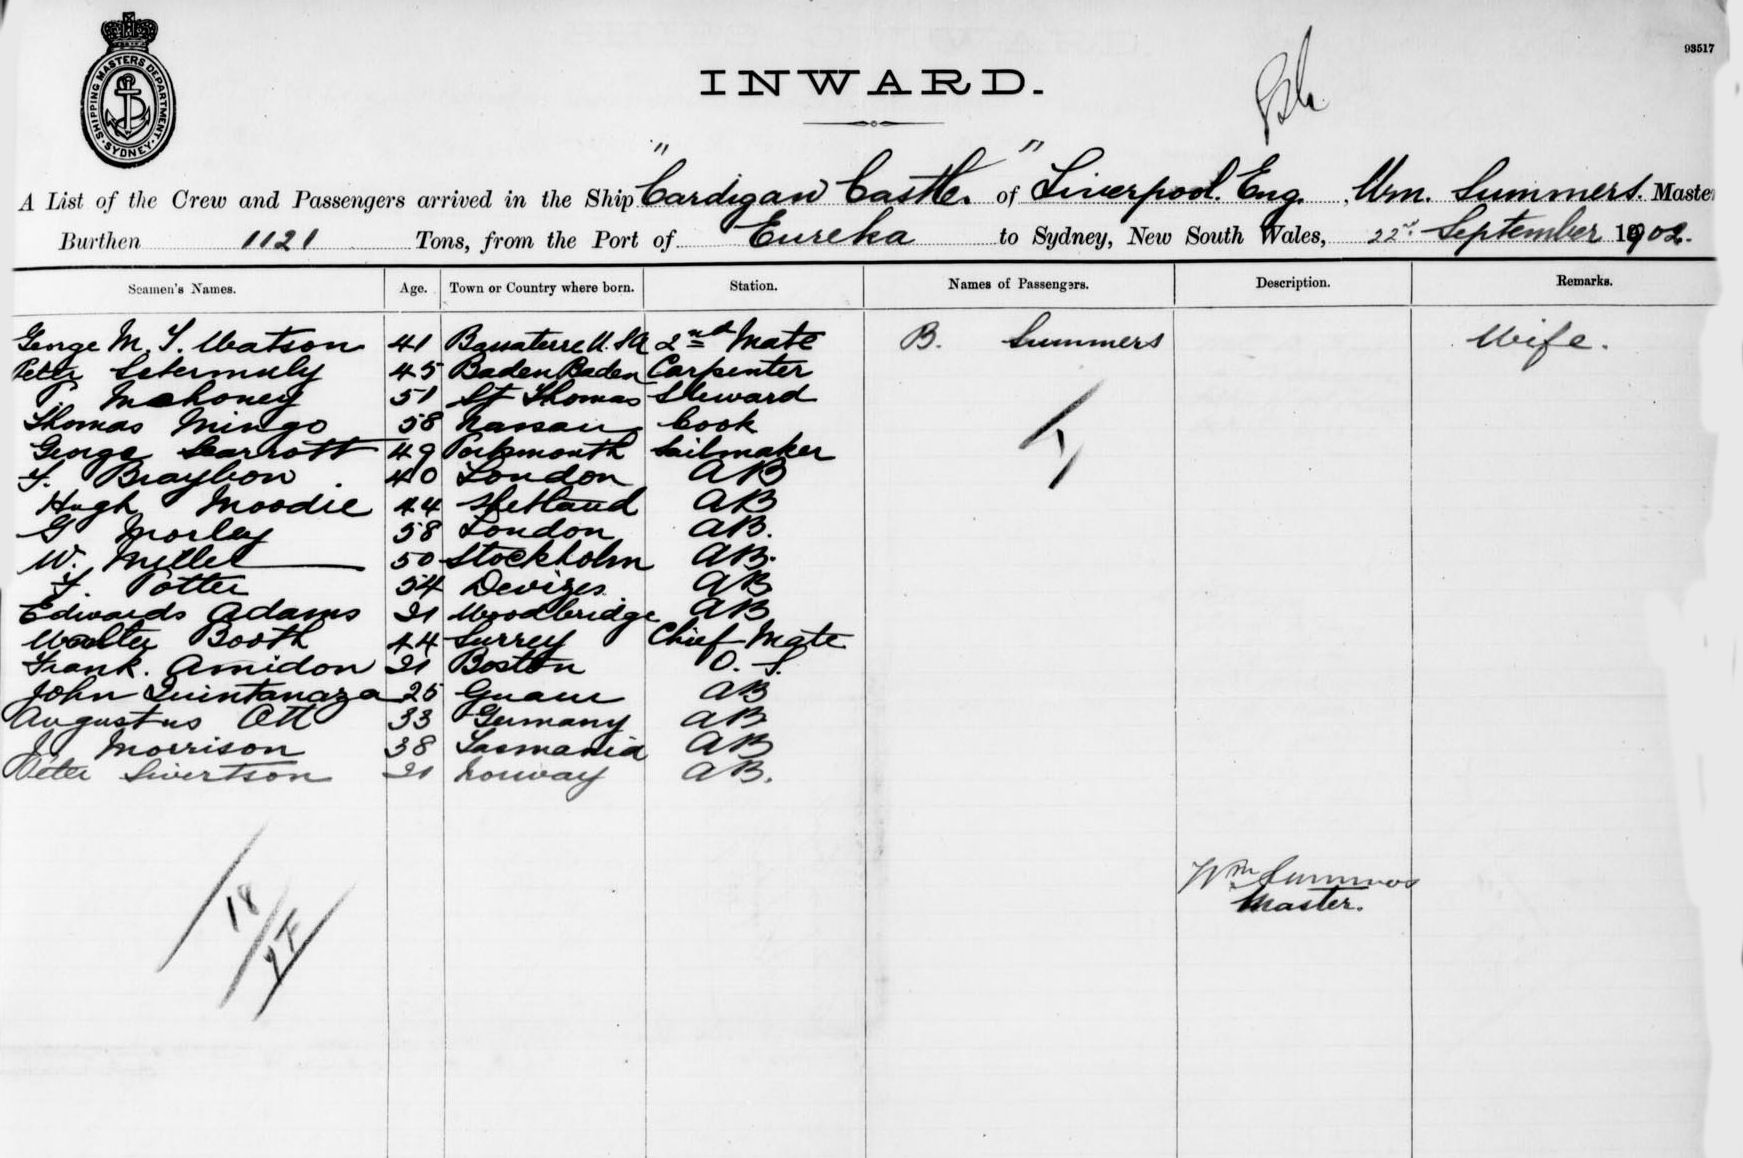 93517
SHIPPING MASTERS DEPARTMENT SYDNEY
INWARD.
A List of the Crew and Passengers arrived in the Ship "Cardigan Castle" of Liverpool. Eng., Wm. Summers. Master
Burthen 1121 Tons, from the Port of Eureka to Sydney, New South Wales, 22nd September 1902.
Seamen's Names. Age. Town or Country where born. Station. Names of Passengers. Description. Remarks.
George M. T. Watson 41 Bassaterre 2nd Mate B. Summers Wife.
Peter 45 Baden Baden Carpenter
P. Mahoney 51 St Thomas Steward
Thomas Mingo 58 Nassau Cook
George Scarrott 49 Portsmouth Sailmaker
F. Braybon 40 London AB
Hugh Moodie 44 Shetland AB
G Morley 58 London AB.
W. Miller 50 Stockholm AB.
F. Potter 54 Devizes AB
Edwards Adams 21 Woodbridge AB
Walter Booth 44 Surrey Chief Mate
Frank. Amidon 21 Boston O. S.
John Quintanaza 25 Guam AB
Augustus Ott 33 Germany AB
J. Morrison 38 Tasmania AB
Peter Sivertson 21 Norway AB.
Wm Summers
Master.
18